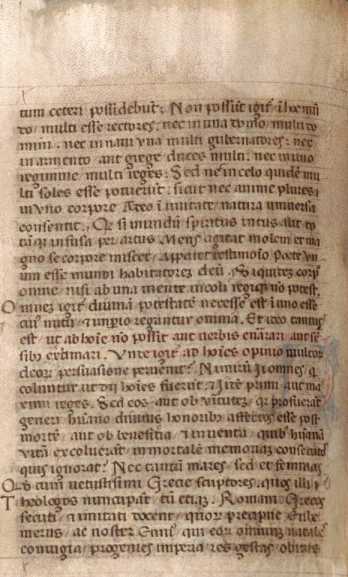 tum ceteri possidebūt: Non possūt igit᷑ ī hoc mū
do multi esse rectores: nec in una domo multi do
mini: nec in naui vna multi gubernatores: nec
in armento aut grege duces multi: nec in uno
regimine multi reges: Sed ne in celo quidē mu
lti soles esse potuerūt: sicut nec anime plures i
n uno corpore Adeo ī unitatē natura uniuersa
consentit. Qd̓ si mundū spiritus intus alit to
tāq̃ infusa per artus Mens agitat molem et ma
gno se corpore miscet. Apparet testimoīo poete vn
um esse mundi habitatorem deū. Siquidez corp̄
omne nisi ab una mente incoli regiq̃ nō potest.
Omnez igit᷑ diuinā potestatē necesse est ī uno esse
cui᷒ nutu ⁊ imp̄io regantur omnia. Et ideo tantus
est ut ab hoīe nō possit aut uerbis enārari aut sē
sib᷒ extimari. Vnde igit᷑ ad hoīes opinio multor
deor̄ persuasione peruenit? Nimirū ii omnes q̃
coluntur ut dii hoīes fuerūt. iidē primi aut ma
ximi reges. Sed eos aut ob uirtutez q̃ profuerāt
generi humano diuinis honoribus affectos esse post
mortē aut ob beneficia ⁊ inuenta quib᷒ humanā
vitā excoluerūt immortalē memoriaz consecuto
quis ignorat? Nec tantū mares sed et feminas
Qd̓ cum uetustissimi Grecie scriptores quos illi
Theologos nuncupāt tū etiā Romani Grecos
secuti ⁊ imitati docent, quor̄ precipue Euhe
merus ac noster Enni᷒ qui eor̄ omniuz natale
coniugia progenies imperia res gestas obitus